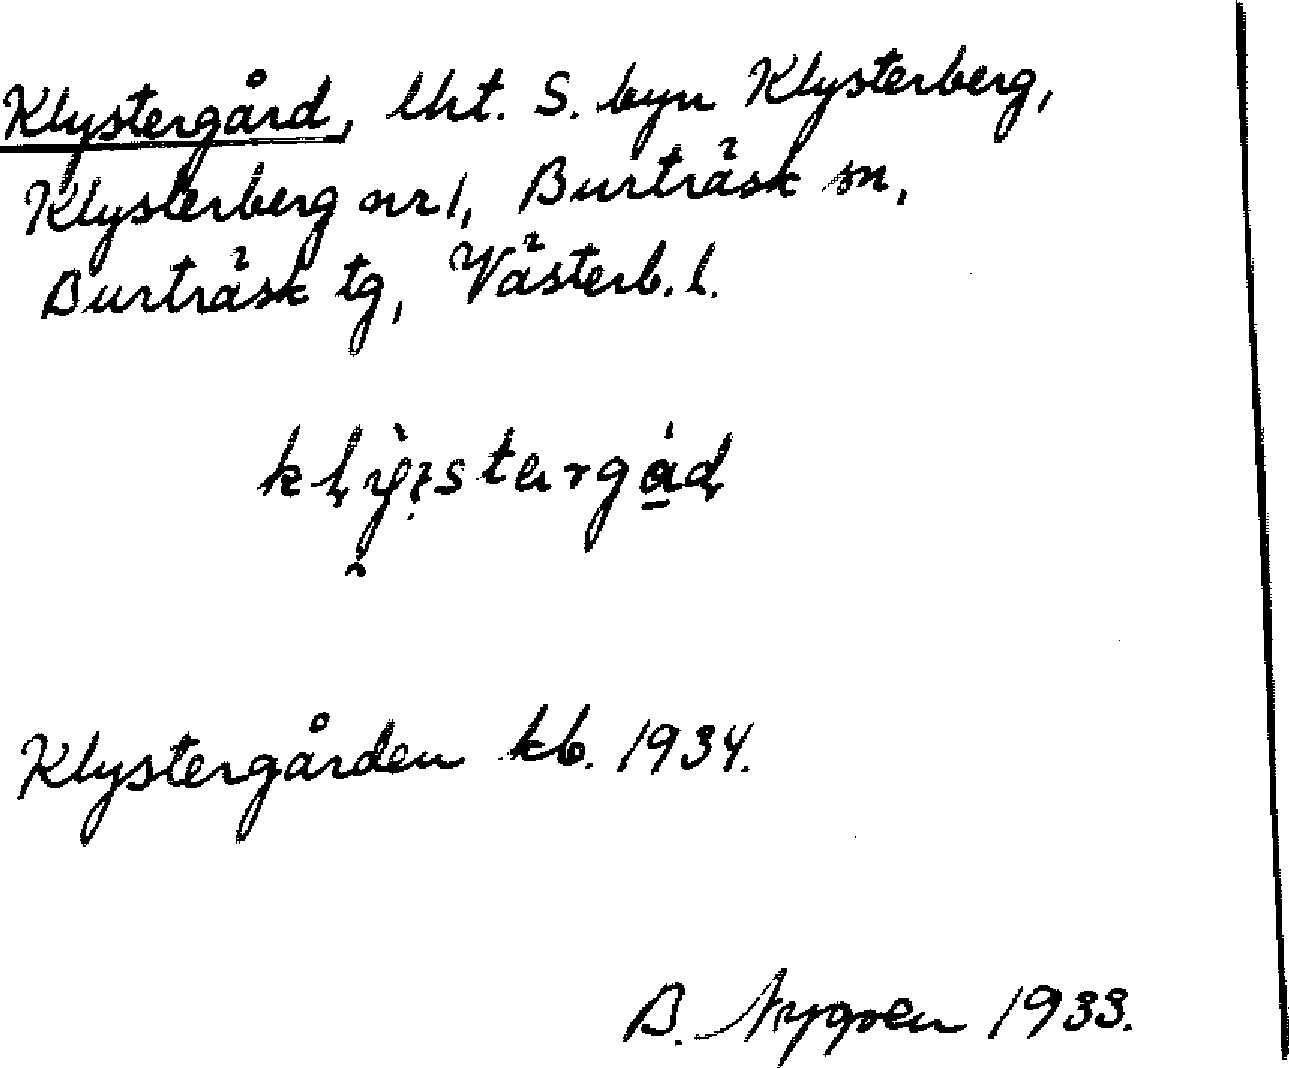 Klystergård, lht. S. byn Klysterberg,
Klysterberg nr 1, Burträsk sn,
Burträsk tg, Västerb. l.
Klystergården kb. 1934.
B. Nygren 1933.